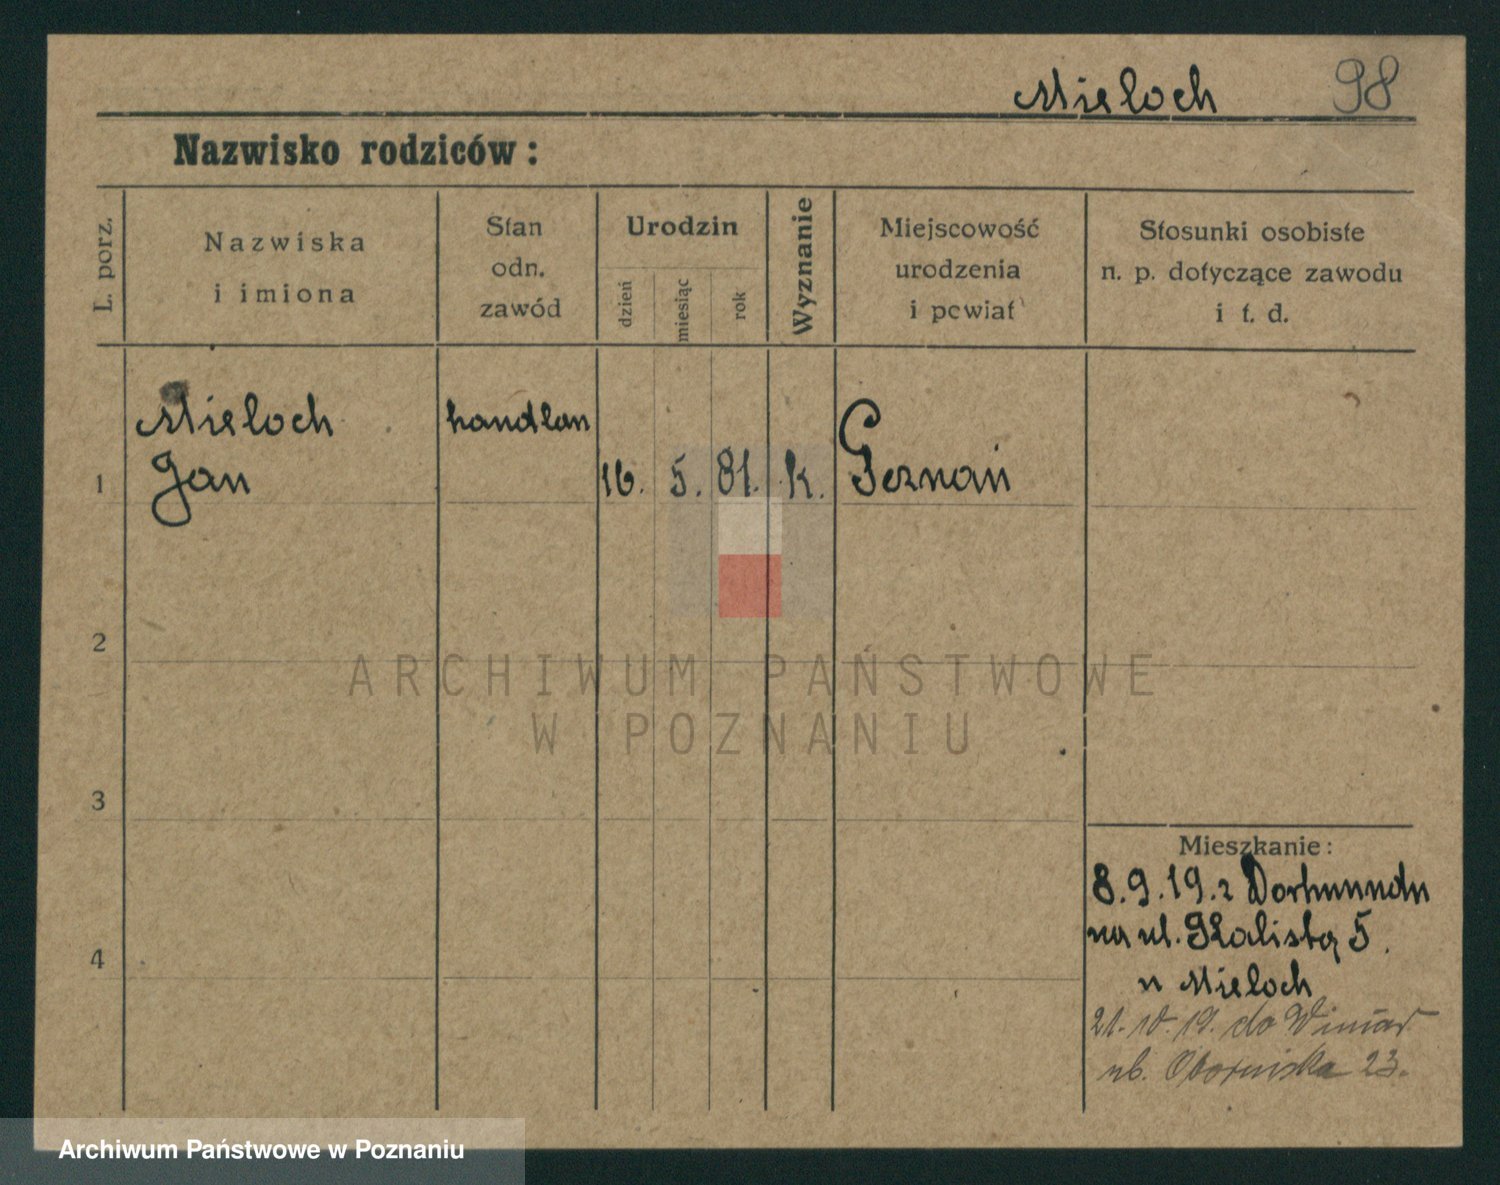 Mieloch 98
Nazwisko rodziców:
L. porz.
Nazwiska
i imiona
Stan
odn.
zawód
Urodzin
dzień
miesiąc
rok
Wyznanie
Miejscowość
urodzenia
i powiat
Stosunki osobiste
n. p. dotyczące zawodu
i t. d.
Mieloch handlarz
1 Jan 16. 5. 81. k. Poznań
2
3
4
Mieszkanie:
8.9.19. z Dortmundu
na ul. 5.
u Mieloch
21. 10. 19. do Winiar
ul. Obornicka 23.
ARCHIWUM PAŃSTWOWE
W POZNANIU
Archiwum Państwowe w Poznaniu